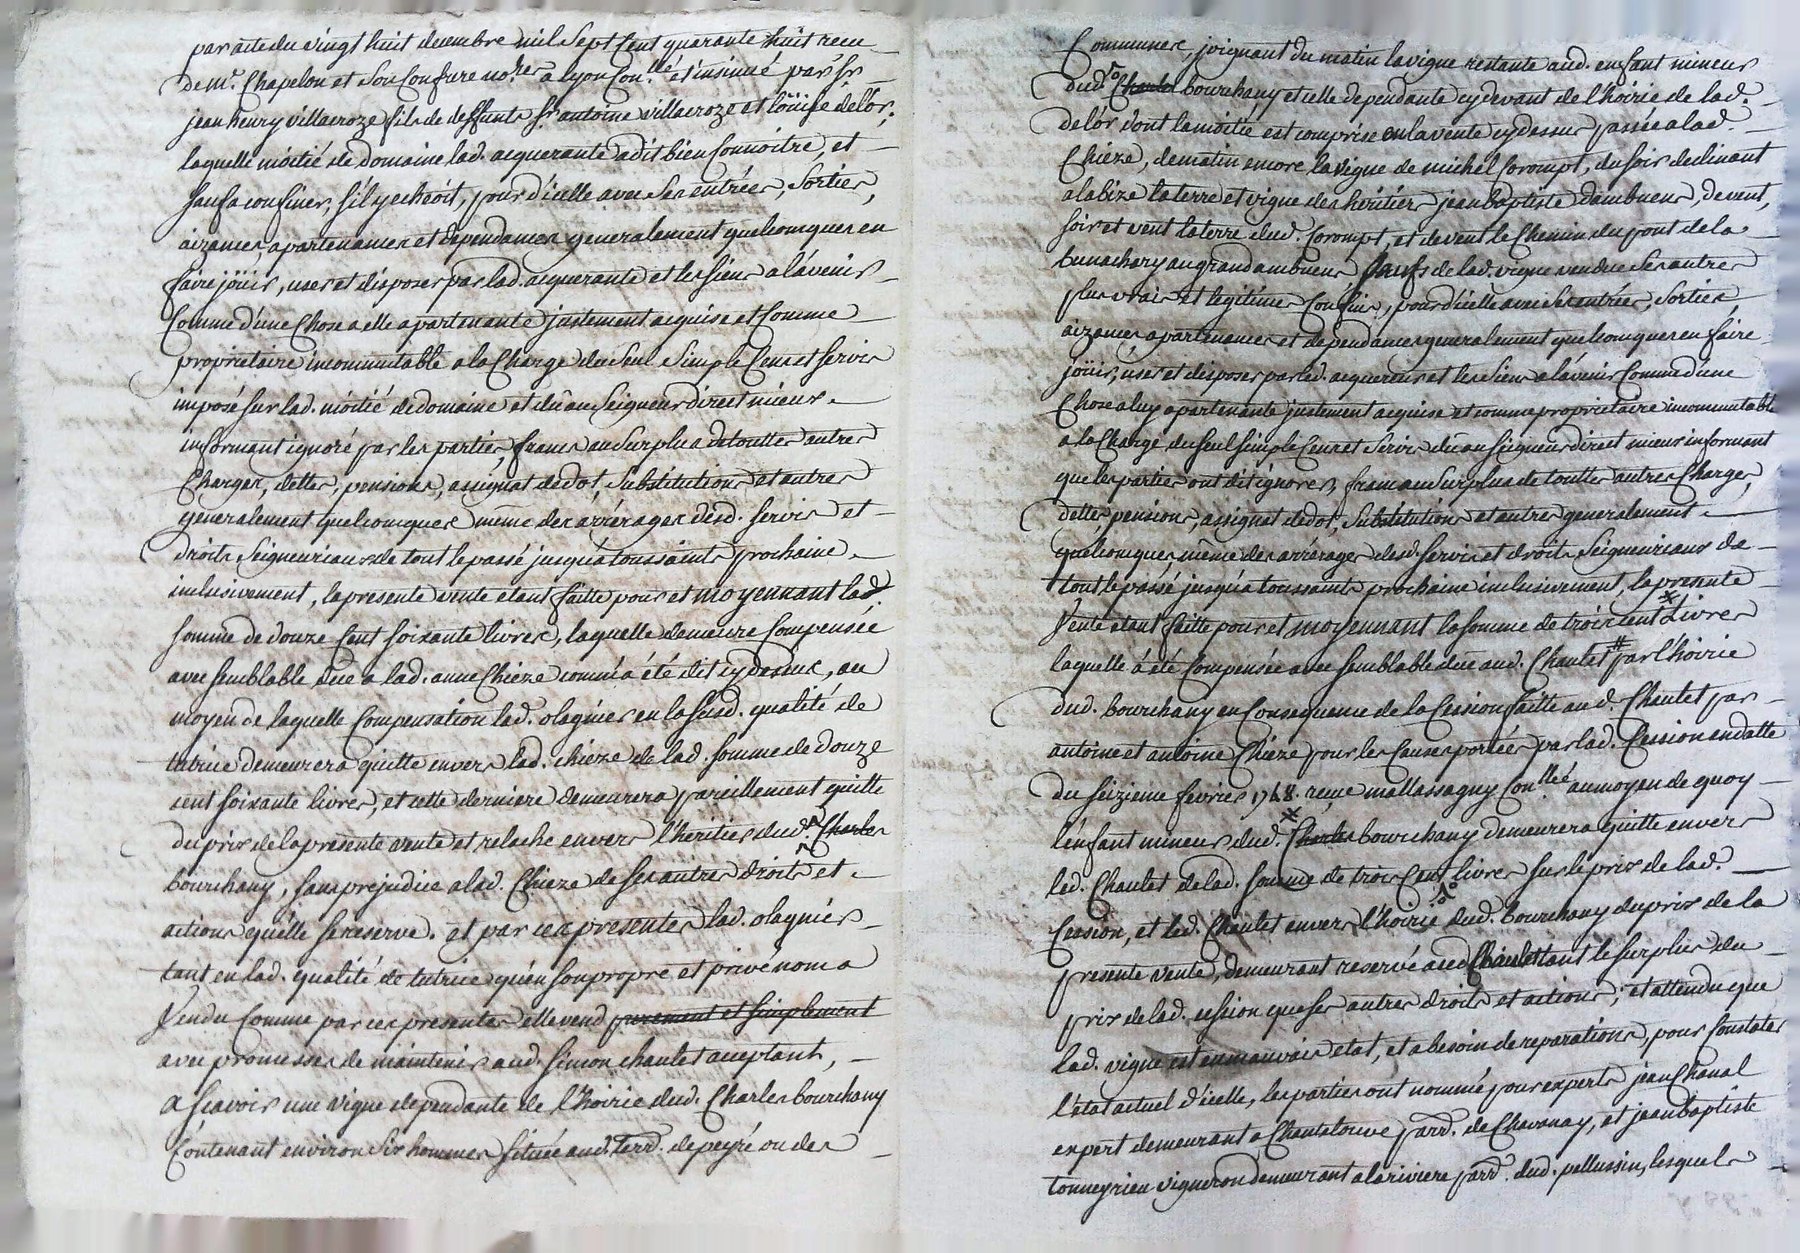 par acte du vingt huit decembre mil sept cent quarante huit recu
de Mr. Chapelon et son Confrere no.res a lyon Con.llé et insinué par Sr
jean henry villacroze fils de deffunts Sr antoine villacroze et Loüise delór,
laquelle móitié de domaine lad. acquerante a dit bien Connoitre, et
sauf a confiner, s'il y echeoit, pour d'icelle avec ses entrées, sorties,
aizances, apartenances et dependances generalement quelconques en
faire joüir, user et disposer par lad. acquerante et les siens a lávenir
Comme d'une Chose a elle apartenante justement acquise et Comme
propriétaire incommutable a la Charge du seul simple Cens et servis
imposé sur lad. móitié de domaine et dû au Seigneur direct mieux
informant ignoré par les parties, francs au surplus de touttes autres
Charges, dettes, pensions, assignat de dot, substitutions et autres
generalement quelconques même des arrérages desd. servis et
droits Seigneuriaux de tout le passé jusquá toussaints prochaine
inclusivement, la presente vente etant faitte pour et moyennant lad.
somme de douze Cent soixante livres, laquelle demeure Compensée
avec semblable düe a lad. anne Chieze comm'a été dit cy dessus, au
moyen de laquelle Compensation lad. olagnier en la susd. qualité de
tutrice demeurera quitte envers lad. chieze de lad. somme de douze
cent soixante livres, et cette derniere demeurera pareillement quitte
du prix de la presente vente et relache envers l'héritier dud. Charles
bourchany, sans prejudice a lad. Chieze de ses autres droits et
actions qu'elle se reserve. et par ces presentes lad. olagnier
tant en lad. qualité de tutrice qu'en son propre et privé nom a
Vendu Comme par ces presentes elle vend purement et simplement
avec promesses de maintenir aud. simon chaulet acceptant,
a scavoir une vigne dependante de l'hoirie dud. Charles bourchany
Contenant environ six hommes située aud. terr. de peyré ou des
Communes, joignant du matin la vigne restante aud. enfant mineur
dud. Charles bourchany et celle dependante cy devant de l'hoirie de lad.
delór dont la móitié est comprise en la vente cy dessus passée a lad.
Chieze, de matin encore la vigne de michel Corompt, du soir declinant
a la bize la terre et vigne des héritiers jean baptiste dambuens, de vent,
soir et vent la terre dud. Corompt, et de vent le Chemin du pont de la
bunachary au grand ambuens sauf de lad. vigne vendue ses autres
plus vrais et legitimes Confins, pour d'icelle avec ses entrées, sorties,
aizances apartenances et dependances generalement quelconques en faire
joüir, user et disposer par led. acquereur et les siens a lávenir Comme d'une
Chose a luy apartenante justement acquise et comme propriétaire incommutable
a la Charge du seul simple Cens et servis dû au Seigneur direct mieux informant
que les parties ont dit ignorer, francs au surplus de touttes autres Charges,
dettes pensions, assignat de dot, substitutions et autres generalement
quelconques même des arrérages desd. servis et droits Seigneuriaux de
tout le passé jusquá toussaints prochaine inclusivement, la presente
Vente etant faitte pour et moyennant la somme de trois cent Livres
laquelle á été Compensée avec semblable düe aud. Chaulet par l'hoirie
dud. bourchany en Consequence de la Cession faitte aud. Chaulet par
antoine et antoine Chieze pour les Causes portées par lad. Cession en datte
du seizieme fevrier 1768 reçue Mallassagny Con.llée au moyen de quoy
l'enfant mineur dud. Charles bourchany demeurera quitte envers
led. Chaulet de lad. somme de trois Cent livres sur le prix de lad.
Cession, et led. Chaulet envers l'hoirie dud. bourchany du prix de la
presente vente, demeurant reservé aud. Chaulet tant le surplus du
prix de lad. cession que ses autres droits et actions; et attendu que
lad. vigne est en mauvais etat, et a besoin de reparations, pour Constater
l'état actuel d'icelle, les parties ont nommé pour experts jean Chaval
expert demeurant a Chantelouve parr. de Chavanay, et jean baptiste
tonneyrieu vigneron demeurant a la riviere parr. dud. pellussin, lesquels